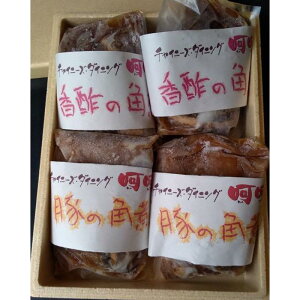 チャイニーズ・ダイニング 阿
香酢の角
チャイニーズ・ダイニング 阿
香酢の角
チャイニーズ・ダイニング 阿
豚の角煮
チャイニーズ・ダイニング 阿
豚の角煮